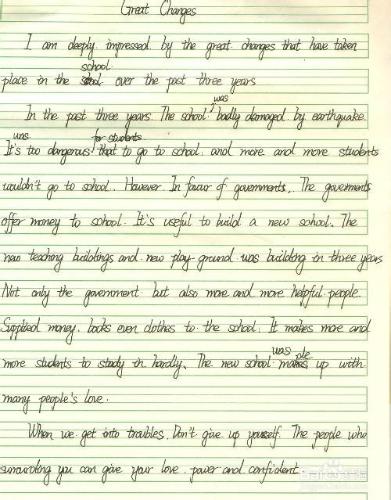 Great Changes
I am deeply impressed by the great changes that have taken
school
place in the over the past three years
was
In the past three years. The school badly damaged by earthquake.
was for students
It's too dangerous that to go to school. and more and more students
wouldn't go to school. However. In favour of governments,. The goverments
offer money to school. It's useful to build a new school. The
new teaching buildings and new play ground was building in three years
Not only the government but also more and more helpful people.
Supplied money. books even clothes to the school. It makes more and
more students to study in hardly. The new school
was
up with
many people's love.
When we get into troubles. Don't give up youself. The people who
surrounding you can give your love. power and confident.